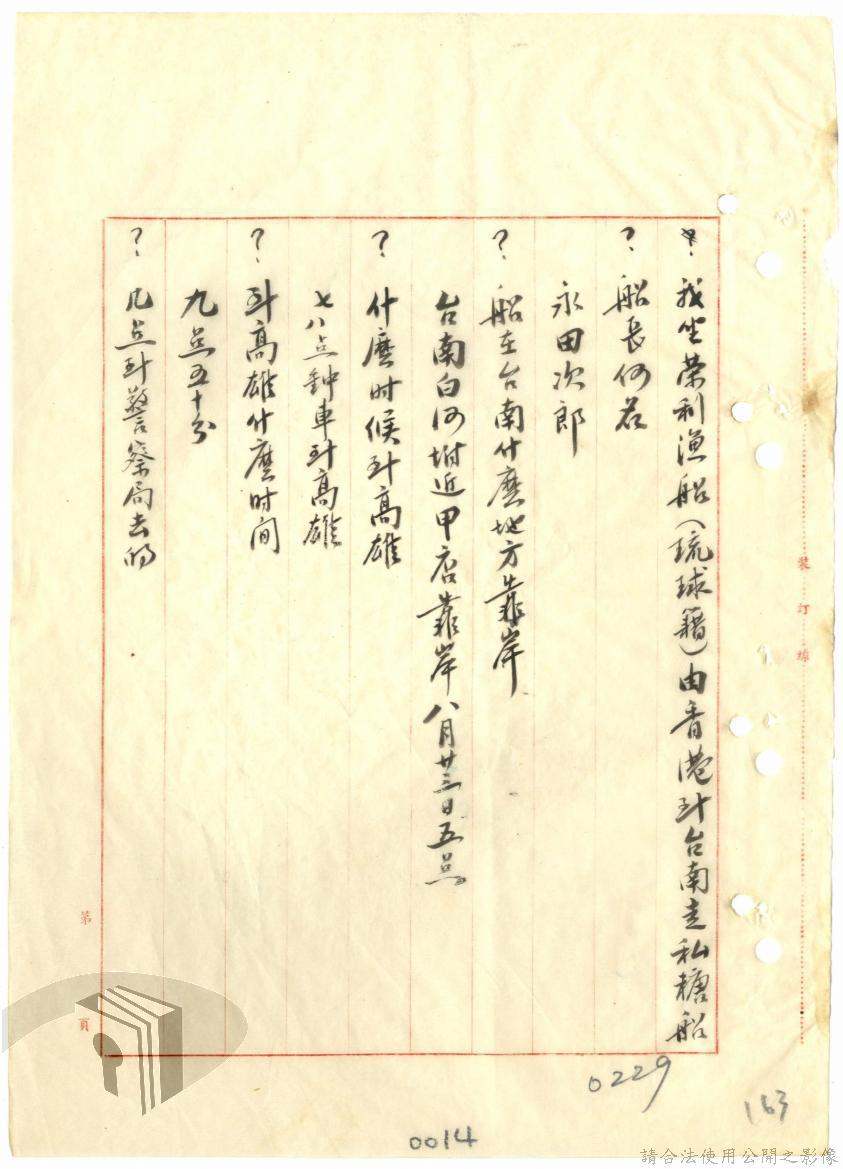 我坐荣利漁船(琉球籍)由香港到台南走私糖船
? 船長何名
永田次郎
? 船在台南什麼地方靠岸
台南白河坿近甲店靠岸八月廿三日五点
? 什麼时候到高雄
七八点鐘車到高雄
? 到高雄什麼时间
九点五十分
? 几点到警察局去的
裝訂線
第 頁
0229
163
0014
請合法使用公開之影像